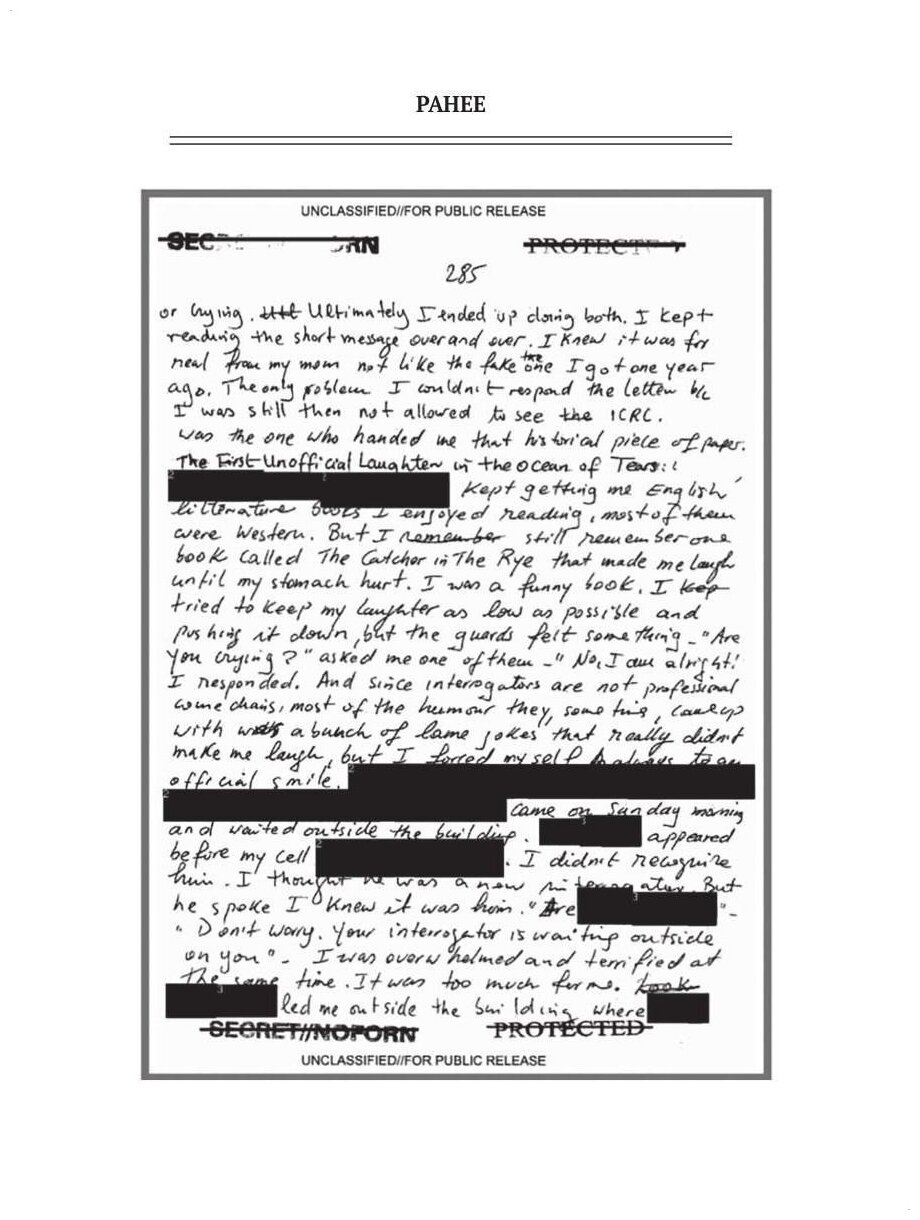 PAHEE
UNCLASSIFIED//FOR PUBLIC RELEASE
SEC RN PROTECT
285
or crying. Ultimately I ended up doing both. I kept
reading the short message over and over. I knew it was for
real from my mom not like the fake the one I got one year
ago. The only problem I couldn't respond the letter b/c
I was still then not allowed to see the ICRC.
was the one who handed me that historical piece of paper.
The First Unofficial Laughter in the ocean of Tears:
2 2 kept getting me English
litterature books I enjoyed reading, most of them
were Western. But I remember still remember one
book called The Catcher in The Rye that made me laugh
until my stomach hurt. I was a funny book. I kep
tried to keep my laughter as low as possible and
pushing it down, but the guards felt something - "Are
you crying?" asked me one of them - "No, I am alright!
I responded. And since interrogators are not professional
comedians, most of the humour they, some time, came up
with a bunch of lame jokes that really didn't
make me laugh, but I forced my self always to an
official smile. 2
2 came on Sunday morning
and waited outside the building. 3 appeared
before my cell 2 . I didn't recognize
him. I thought he was a new interrogator. But
he spoke I knew it was him. "Are 3 " -
"Don't worry. Your interrogator is waiting outside
on you" - I was overwhelmed and terrified at
the same time. It was too much for me. took
3 led me outside the building where
SECRET//NOFORN PROTECTED
UNCLASSIFIED//FOR PUBLIC RELEASE